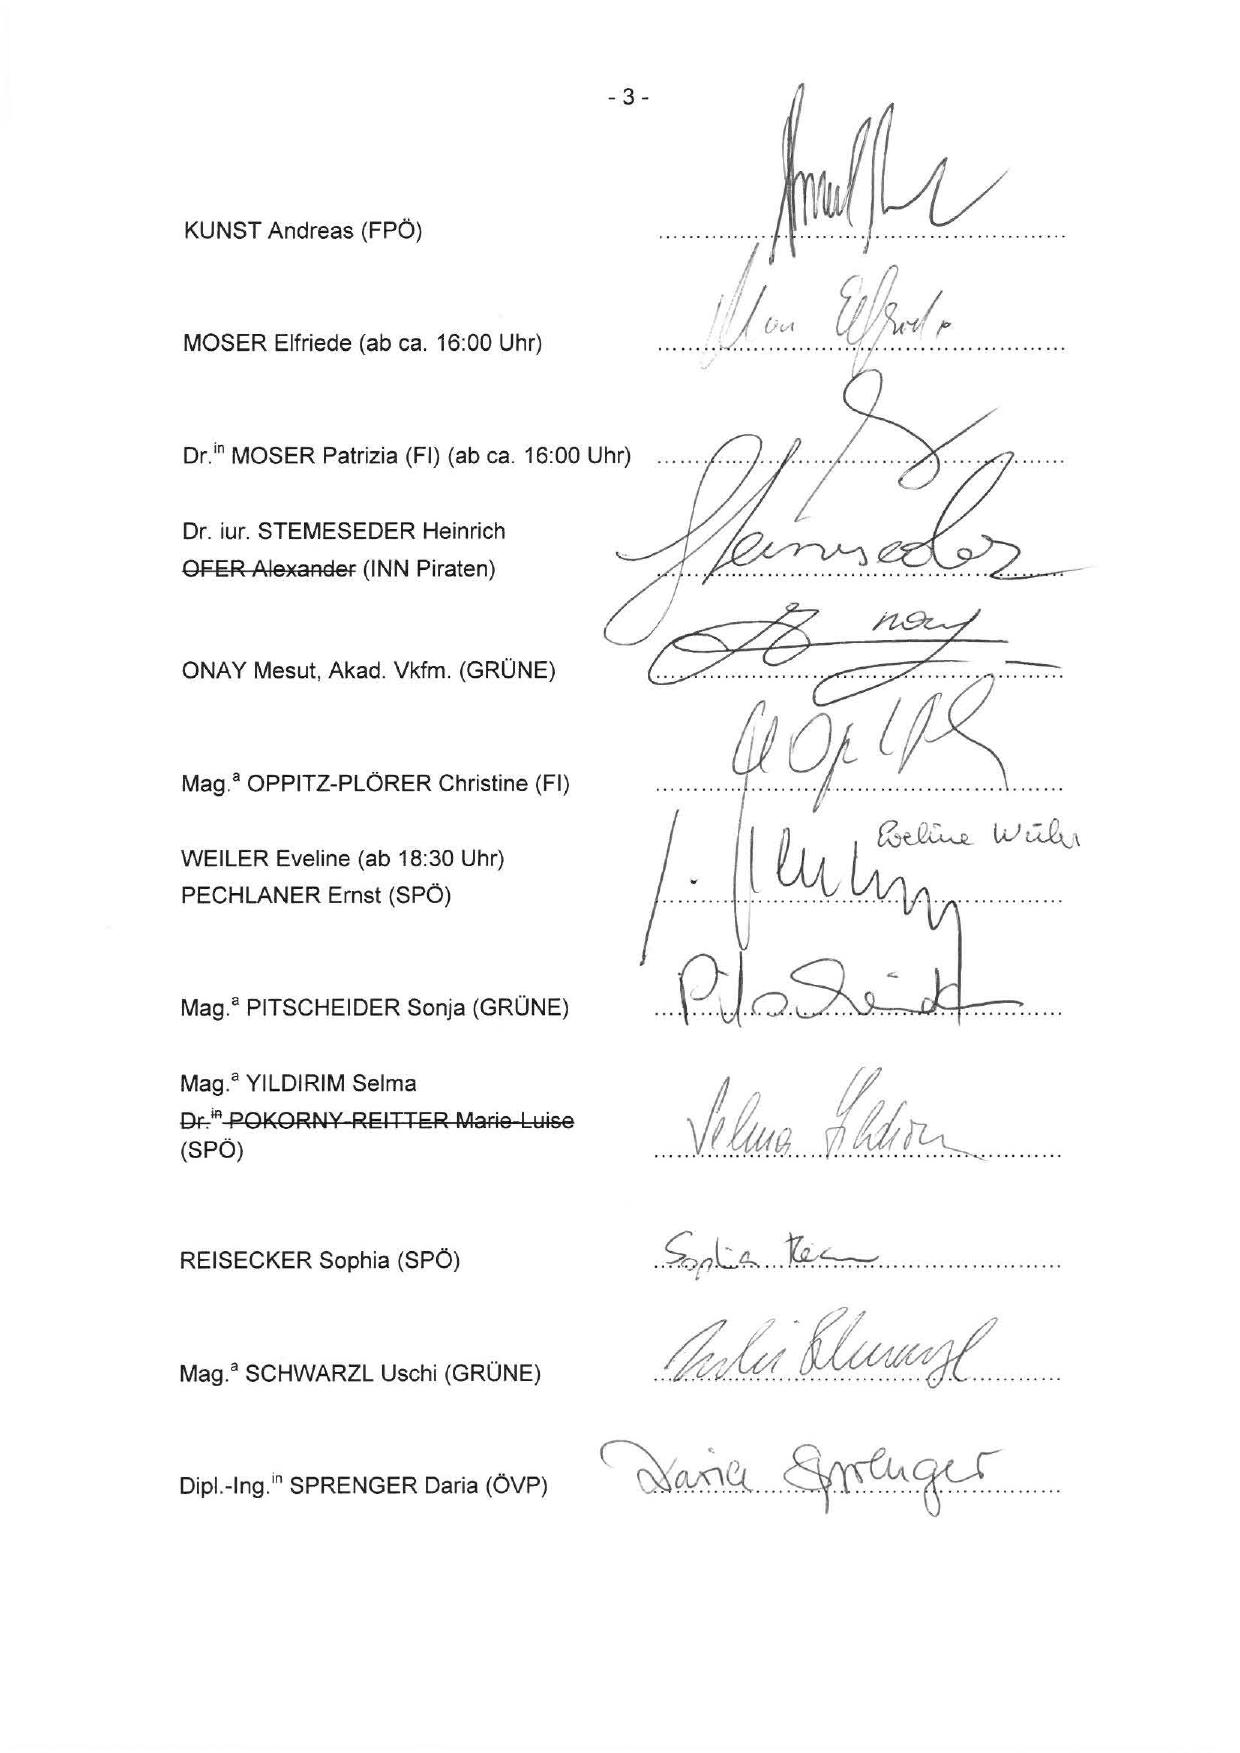 - 3 -
KUNST Andreas (FPÖ)
MOSER Elfriede (ab ca. 16:00 Uhr)
Elfriede
Dr.in MOSER Patrizia (FI) (ab ca. 16:00 Uhr)
Dr. iur. STEMESEDER Heinrich
OFER Alexander (INN Piraten)
Stemeseder
ONAY Mesut, Akad. Vkfm. (GRÜNE)
Mag.a OPPITZ-PLÖRER Christine (FI)
WEILER Eveline (ab 18:30 Uhr)
Eveline Weiler
PECHLANER Ernst (SPÖ)
Mag.a PITSCHEIDER Sonja (GRÜNE)
Mag.a YILDIRIM Selma
Dr.in POKORNY-REITTER Marie-Luise
(SPÖ)
Selma Yildirim
REISECKER Sophia (SPÖ)
Sophia
Mag.a SCHWARZL Uschi (GRÜNE)
Dipl.-Ing.in SPRENGER Daria (ÖVP)
Daria Sprenger